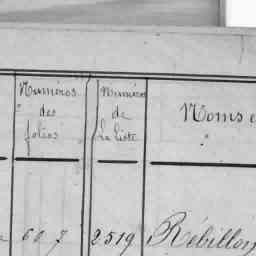 Numéros des folios
Numéros de la liste
Noms e
607
2519
Rébillon